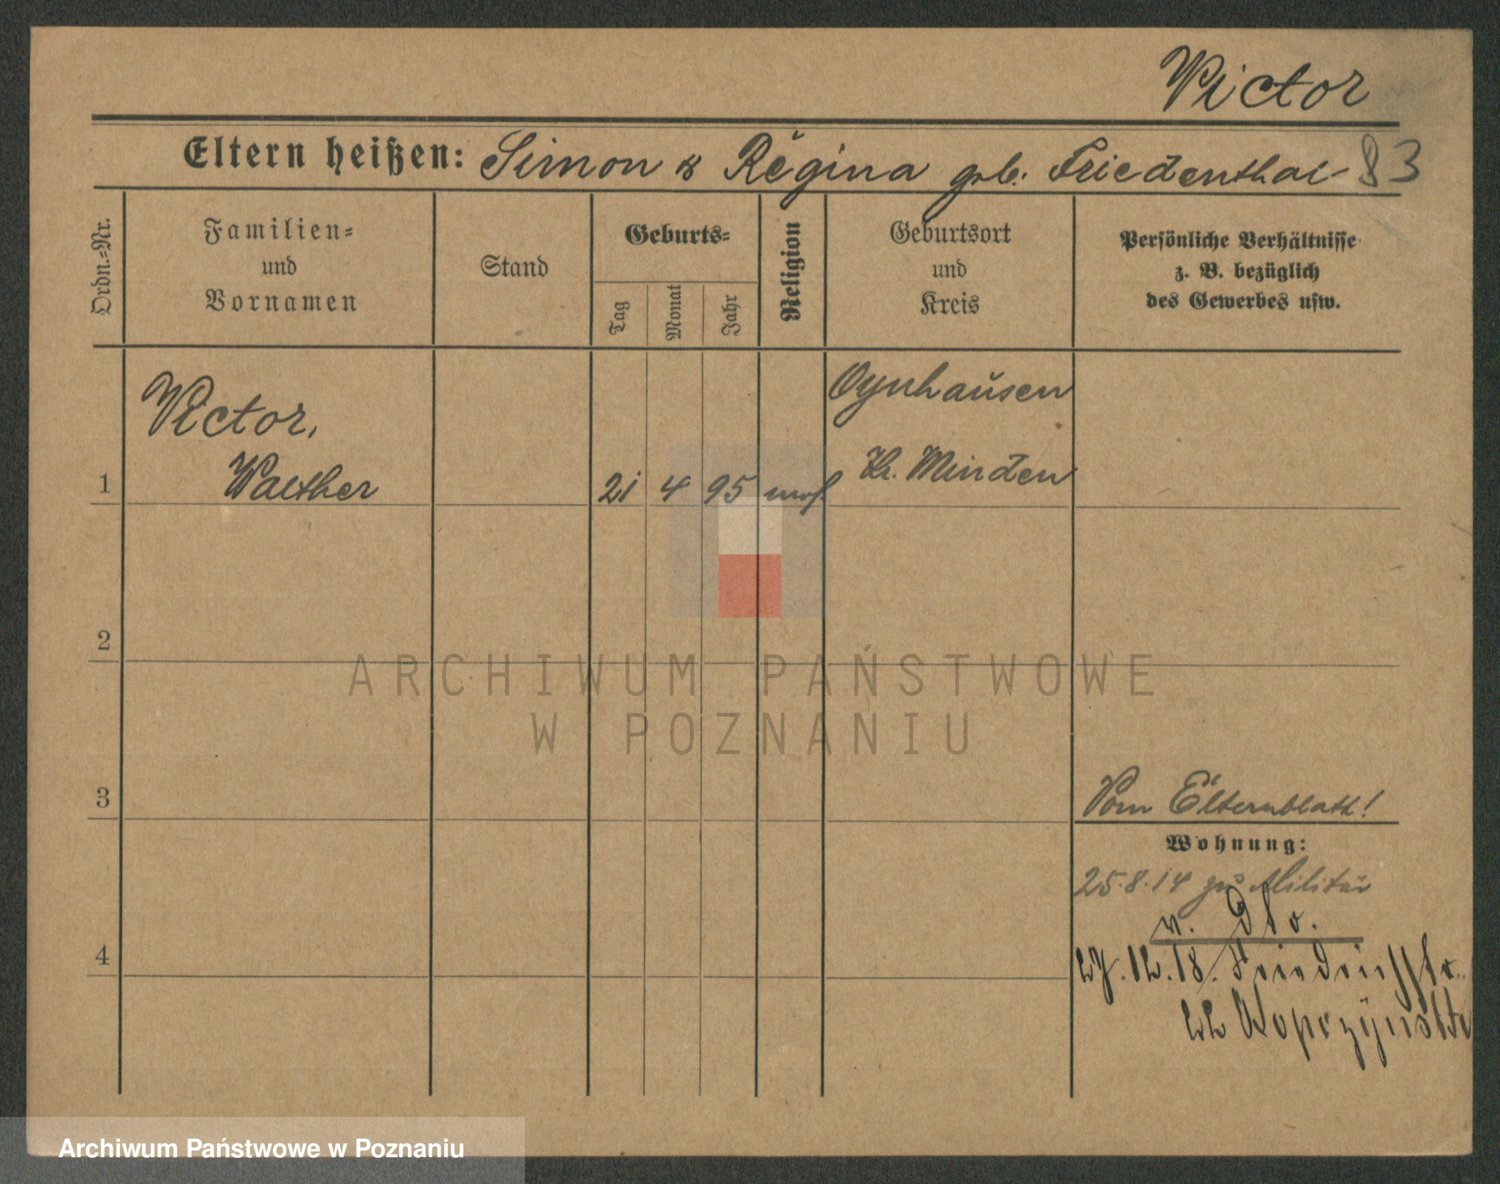 Victor
Eltern heißen: Simon & Regina geb. Friedenthal 83
Ordn.-Nr.
Familien-
und
Vornamen
Stand
Geburts-
Tag
Monat
Jahr
Religion
Geburtsort
und
Kreis
Persönliche Verhältnisse
z. B. bezüglich
des Gewerbes usw.
Victor,
Oynhausen
1 Walther 21 4 95 mos Kr. Minden
2
ARCHIWUM PAŃSTWOWE
W POZNANIU
3
Vom Elternblatt!
Wohnung:
25.8.14 zu Militär
v. Dto.
4
27.12.18. Friedrichstr.
22
Archiwum Państwowe w Poznaniu